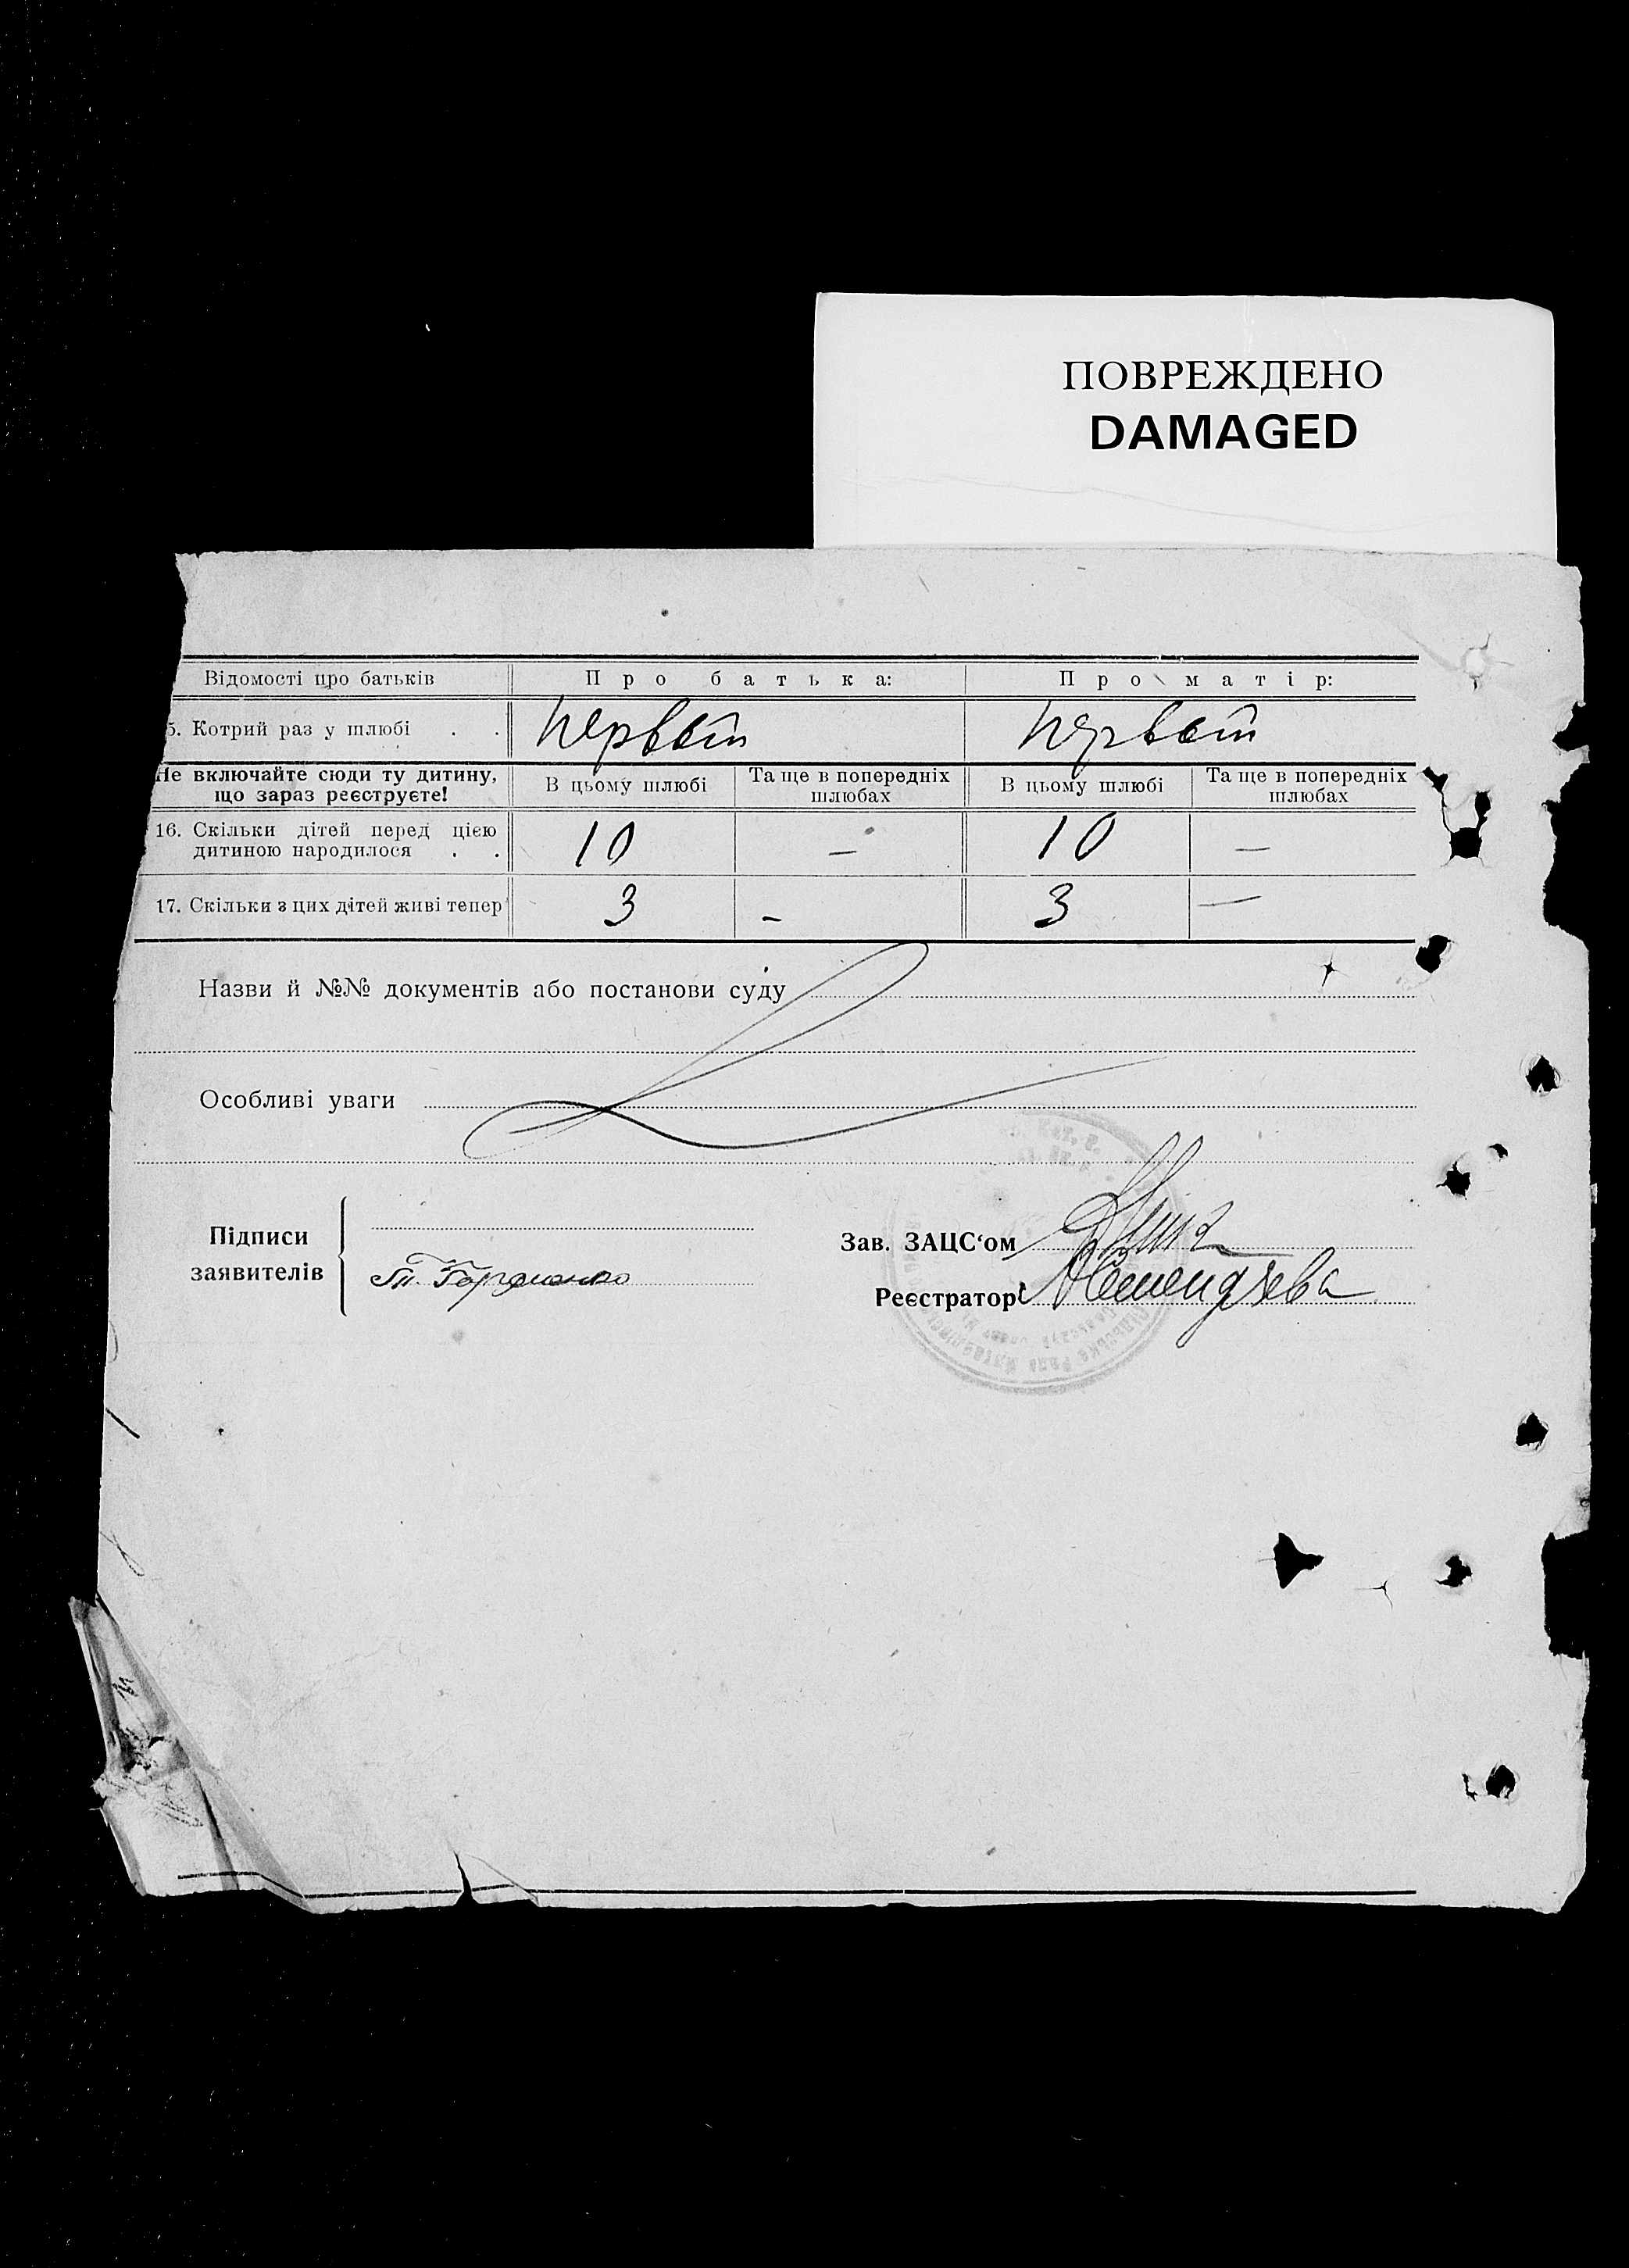 ПОВРЕЖДЕНО
DAMAGED
Відомості про батьків Про батька: Про матір:
5. Котрий раз у шлюбі . . первый первый
Не включайте сюди ту дитину, що зараз реєструєте! В цьому шлюбі Та ще в попередніх шлюбах В цьому шлюбі Та ще в попередніх шлюбах
16. Скільки дітей перед цією дитиною народилося . . 10 — 10 —
17. Скільки з цих дітей живі тепер 3 - 3 —
Назви й №№ документів або постанови суду
Особливі уваги
Підписи заявителів
Зав. ЗАЦС‘ом
Реєстратор